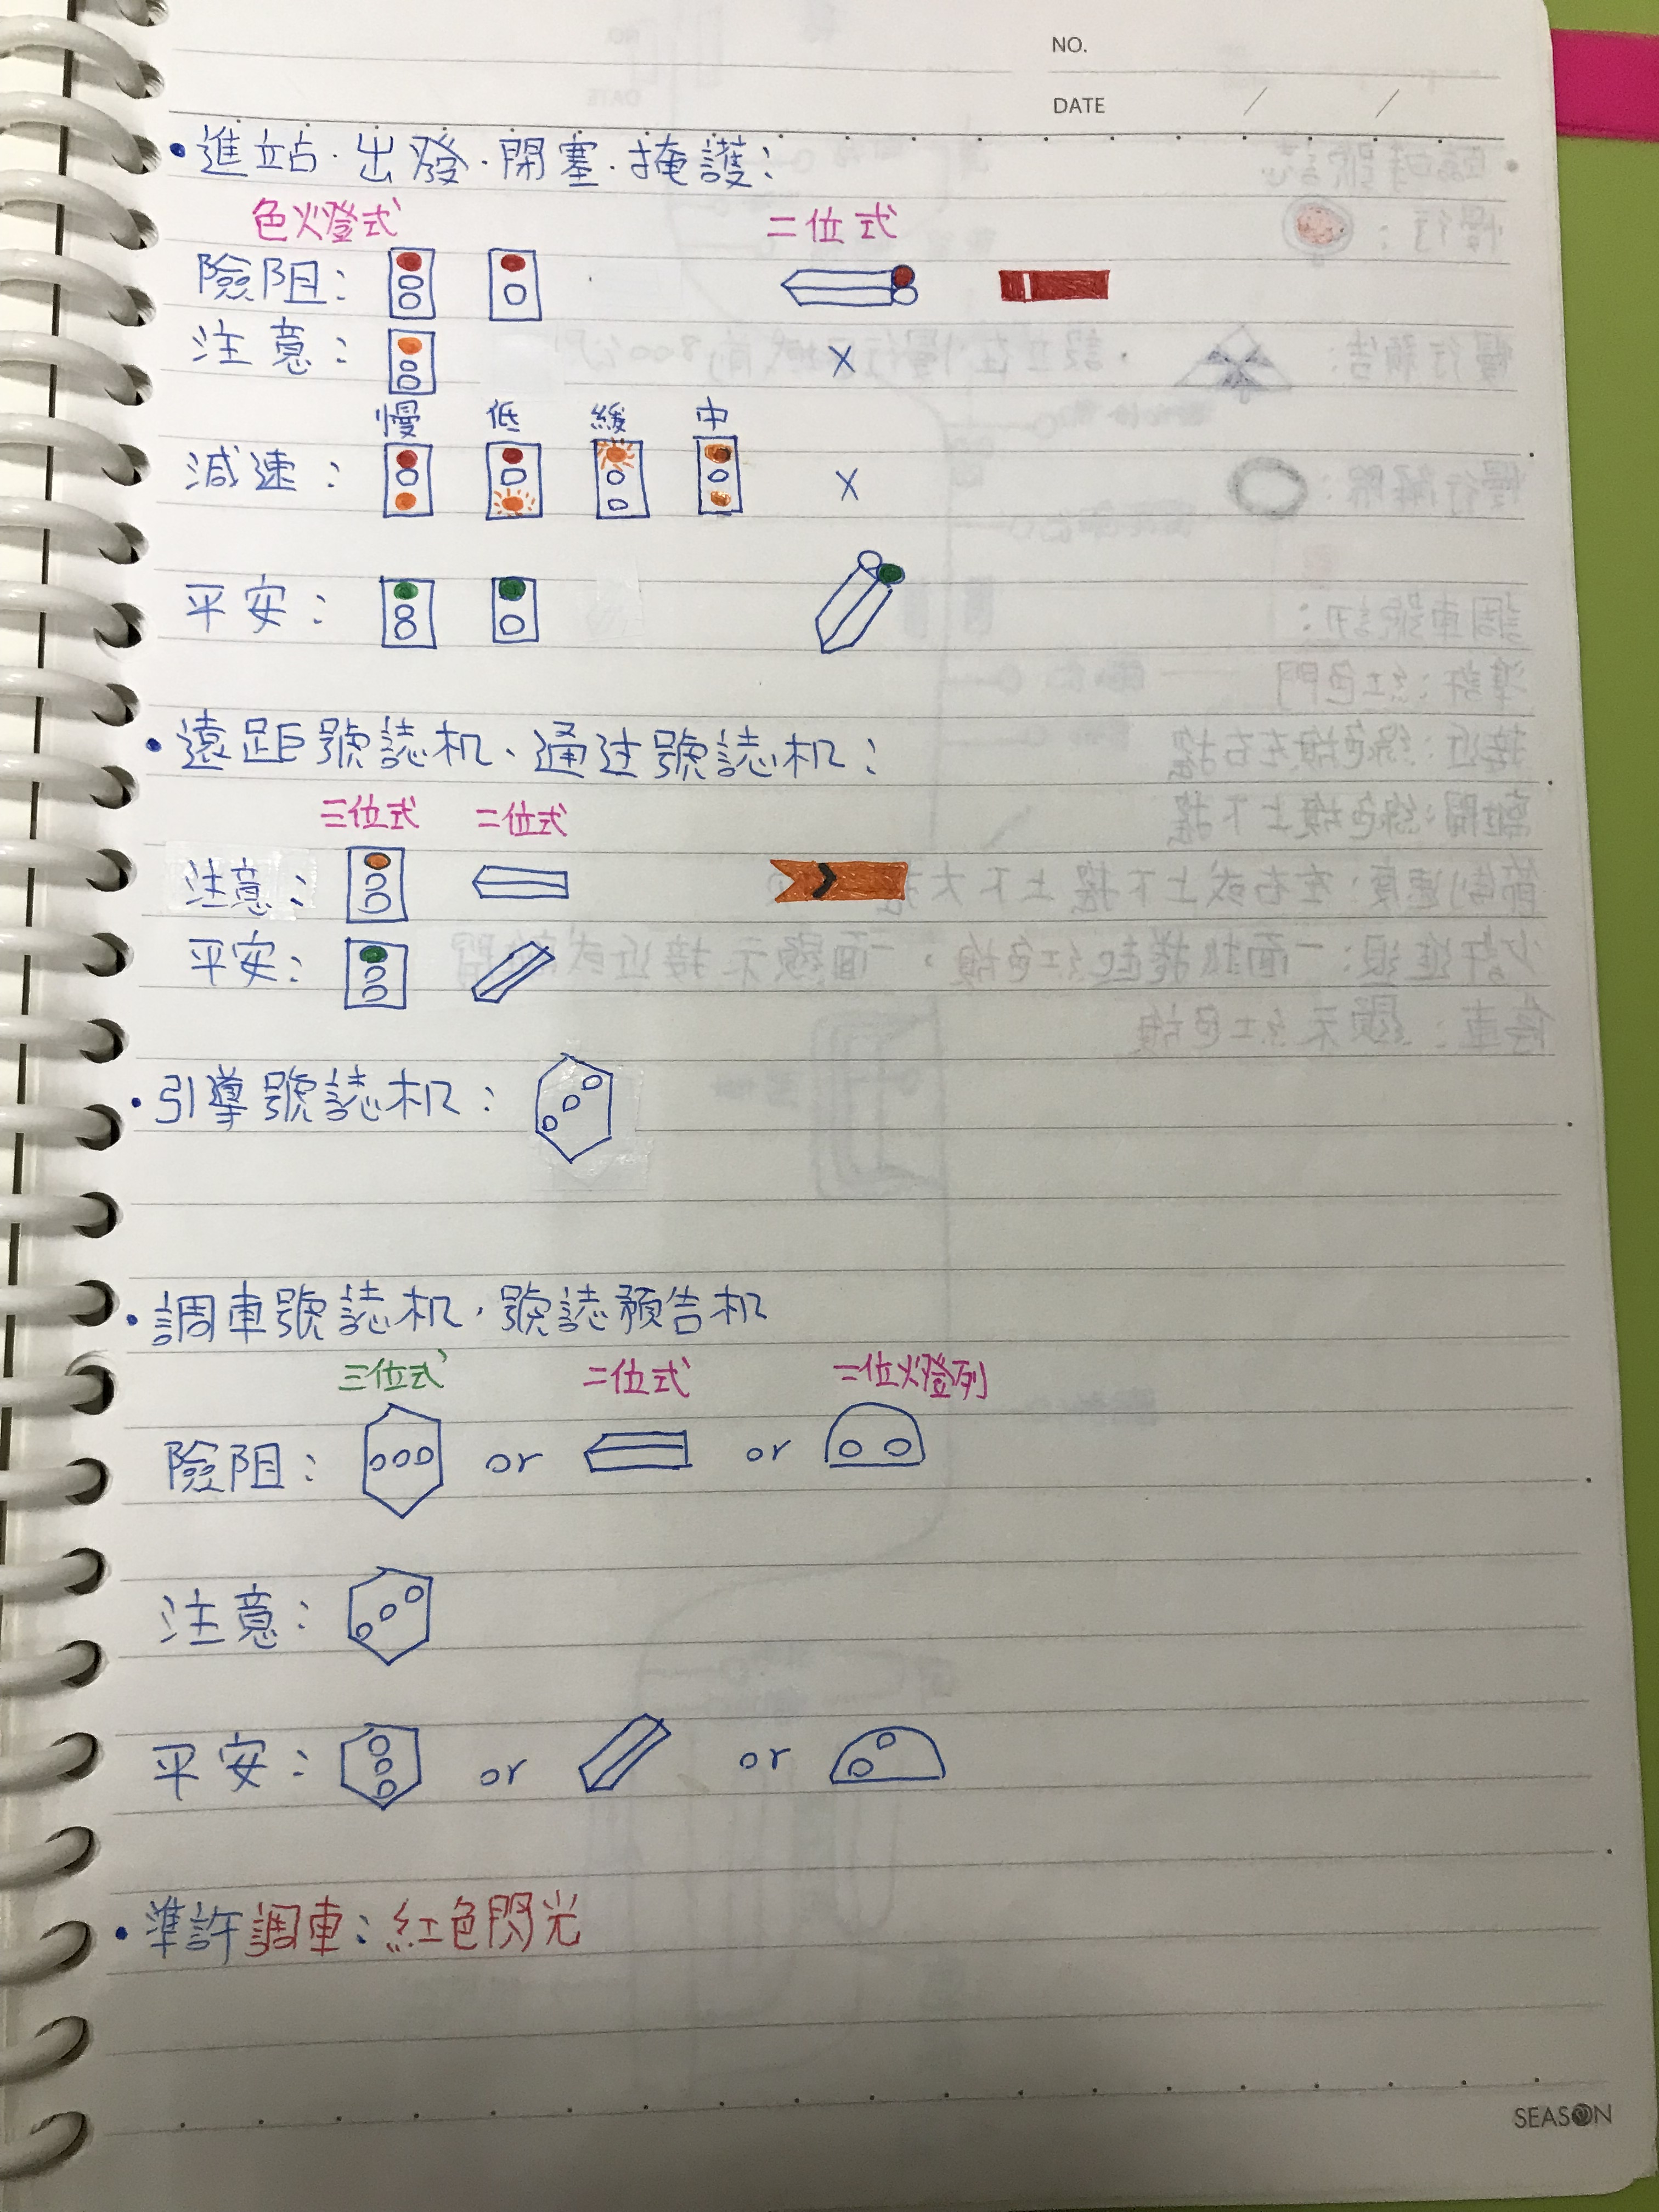 NO.
DATE / /
•進站·出發·閉塞·掩護:
色火燈式 二位式
險阻:
注意: X
慢 低 緩 中
減速: X
平安:
•遠距號誌机、通过號誌机:
三位式 二位式
注意:
平安:
•引導號誌机:
•調車號誌机,號誌預告机
三位式 二位式 二位火燈列
險阻: or or
注意:
平安: or or
•準許調車:紅色閃光
SEASON